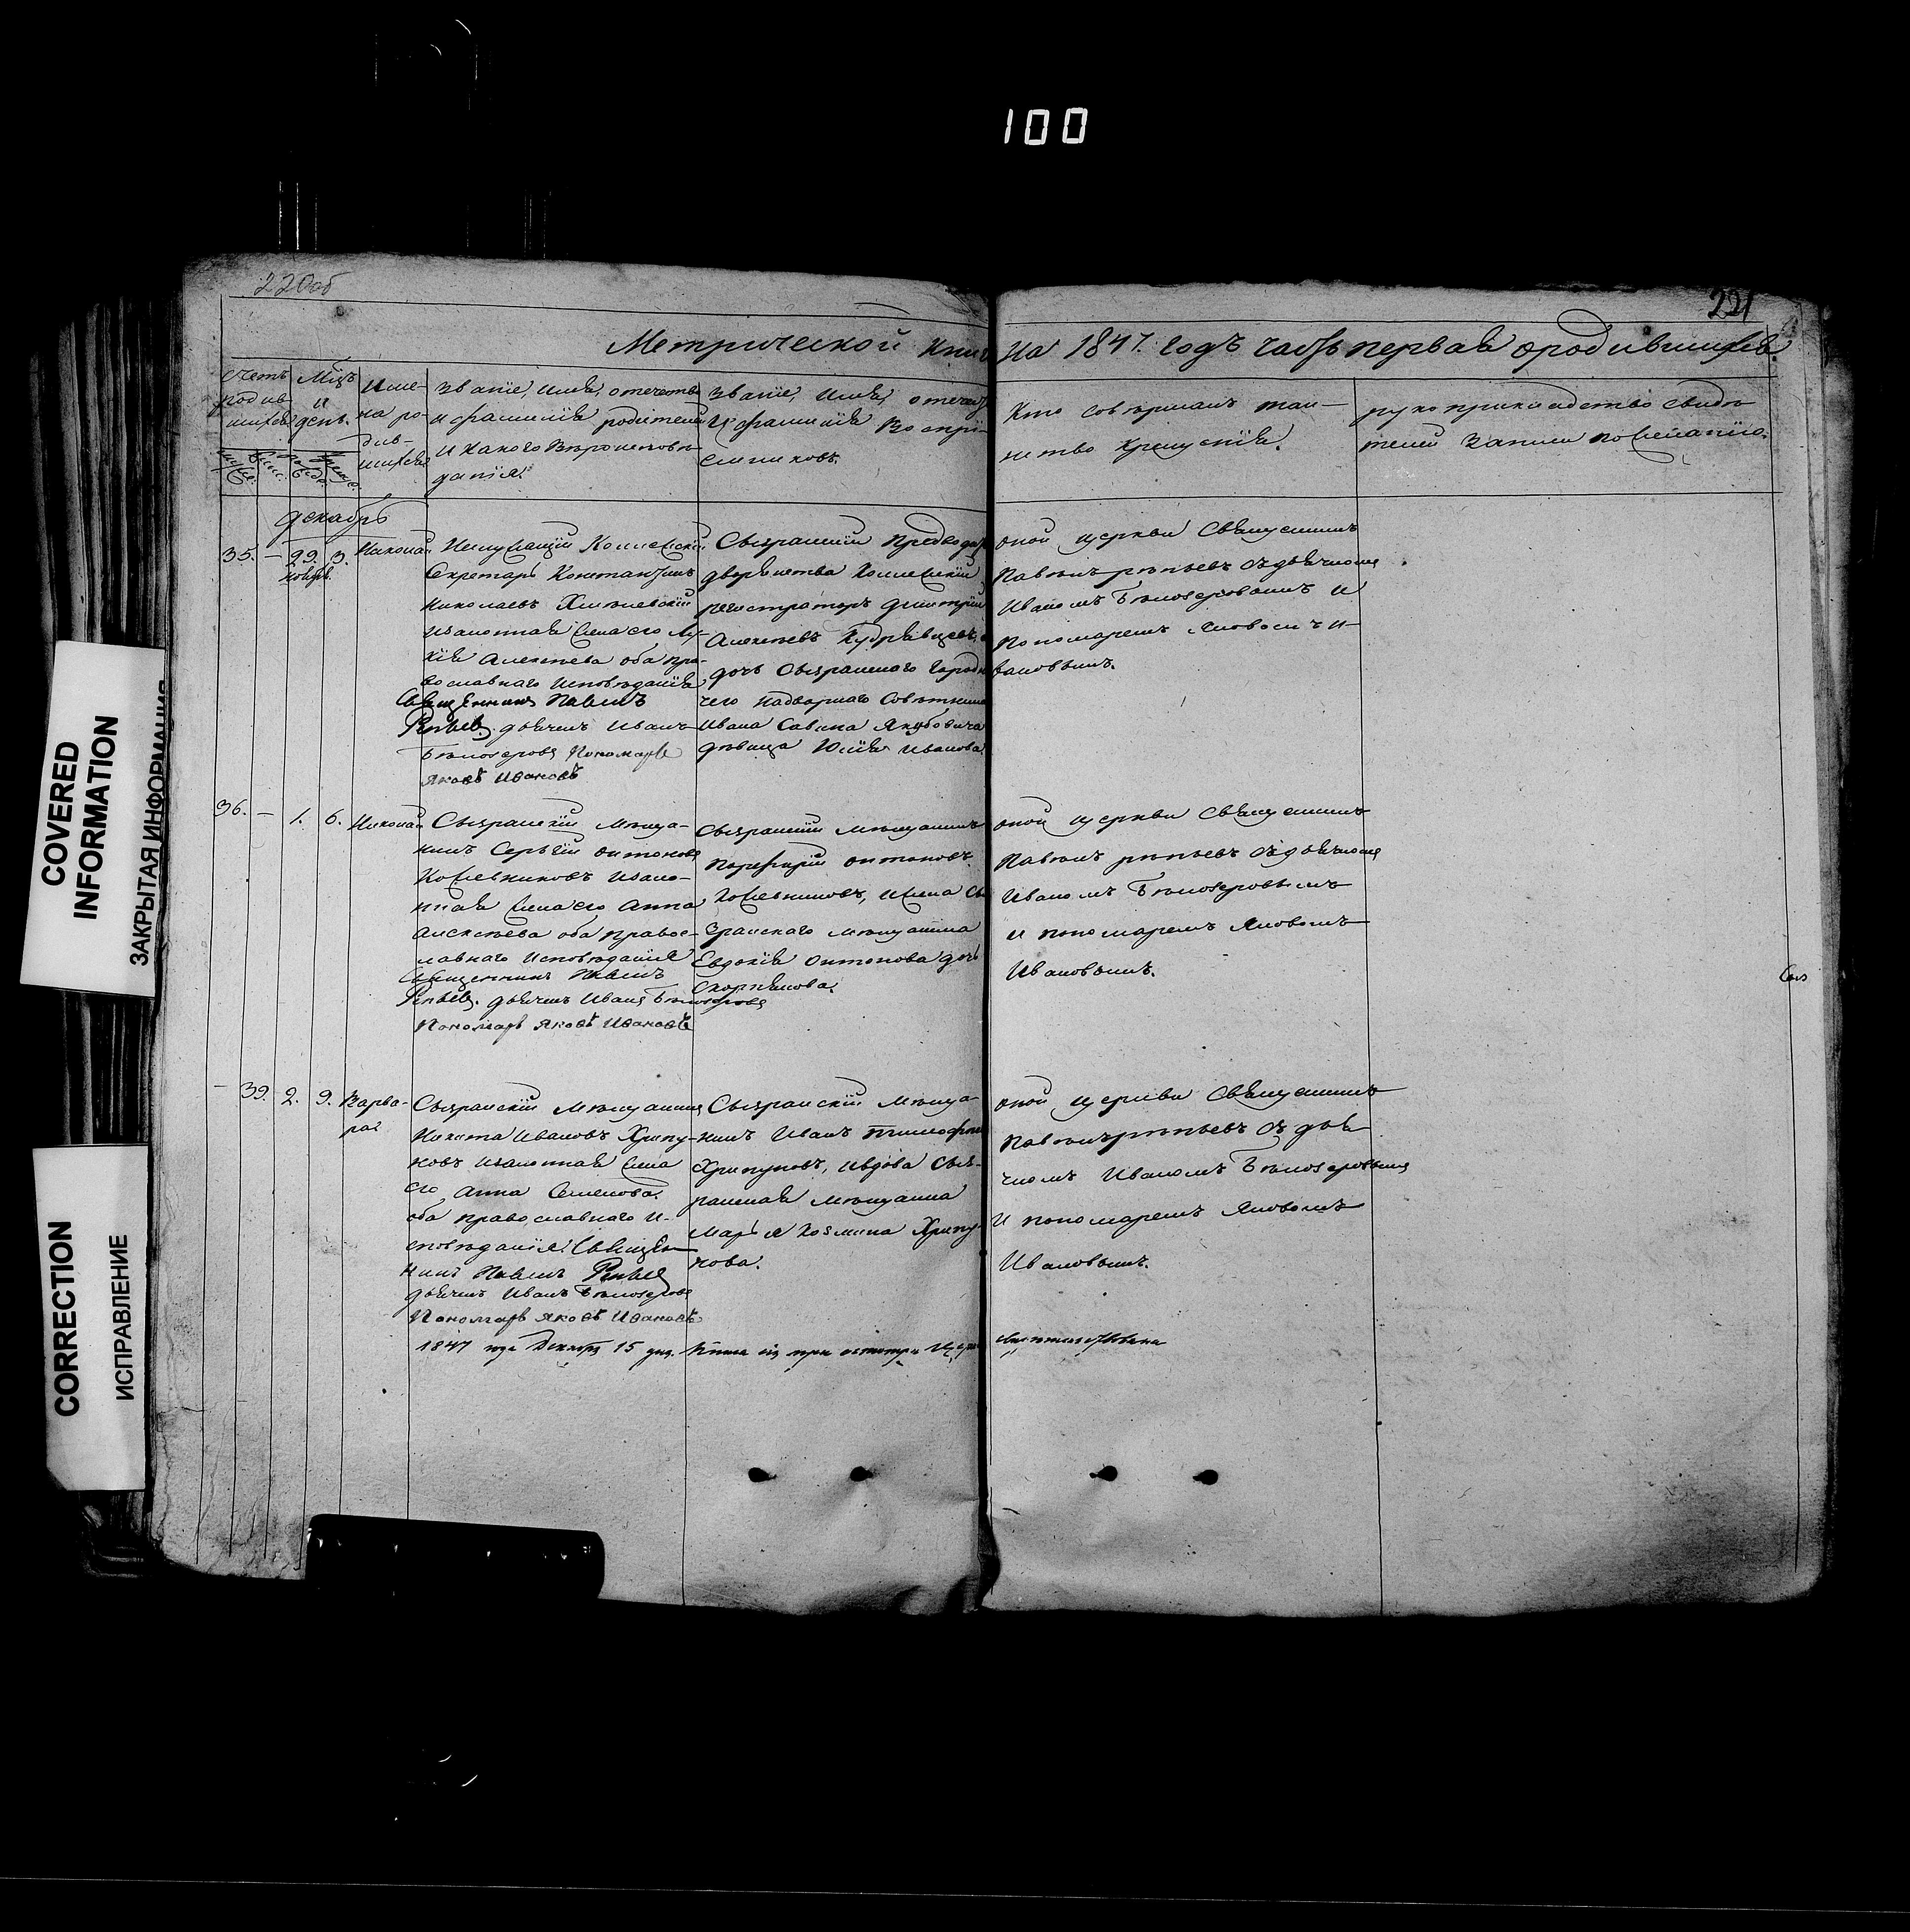 100
COVERED
INFORMATION
ЗАКРЫТАЯ ИНФОРМАЦИЯ
CORRECTION
ИСПРАВЛЕНИЕ
220об
221
Метрической книг на 1847. годъ часть первая о родившихся.
Счетъ
родив
шихся
Мцъ
и
день.
Име-
на ро-
див-
шихся
Званіе, имя, отечество
и фамилія родителей
и какого вѣроисповѣ
данія.
Званіе, имя, отечес
и фамилія воспрі-
емниковъ.
Кто совершалъ таи-
нство крещенія.
рукоприкладство свидѣ
телей записи по желанію.
декабрь
35. — 29. 3.
ноябр.
Николай
Секретарь Константинъ
Николаевъ Хмѣлевскій
изаконная жена его Ли-
дія Алексѣева оба пра-
вославнаго исповѣданія
Священникъ Павелъ
дьячекъ Иванъ
Бѣлозеровъ Пономарь
Яковъ Ивановъ
Сызранскій предводи
дворянства Коллежскій
регистраторъ Дмитрій
Алексѣевъ Кудрявцевъ, и
дочь Сызранского городн
чего надворнаго совѣтника
Ивана Савина Якубовича
дѣвица Юлія Иванова.
оной церкви Священникъ
Павелъ съ дьячкомъ
Иваномъ Бѣлозеровымъ и
Пономаремъ Яковомъ И-
вановымъ.
36. — 1. 6. Николай
Сызранскій мѣща-
нинъ Сергій Антоновъ
Кожевниковъ изако-
нная жена его Анна
Алексѣева оба правос-
лавнаго исповѣданія
Священникъ Павелъ
дьячекъ Иванъ Бѣлозеровъ
Пономарь Яковъ Ивановъ
Сызранскій мѣщанинъ
Порфирій Антоновъ
Кожевниковъ, и жена Сы
зранскаго мѣщанина
Евдокія Антонова дочь
Скорнякова.
оной церкви Священникъ
Павелъ съ дьячкомъ
Иваномъ Бѣлозеровымъ
и пономаремъ Яковомъ
Ивановымъ.
— 39. 2. 9. Варва-
ра
Сызранскій мѣщанинъ
Никита Ивановъ Хрипу-
новъ изаконная жена
его Анна Семенова.
оба православнаго и-
сповѣданія. Священ
никъ Павелъ
дьячекъ Иванъ Бѣлозеровъ
Пономарь Яковъ Ивановъ
Сызранскій мѣща-
нинъ Иванъ Тимофѣ
Хрипуновъ, и вдова Сыз-
ранская мѣщанка
Марья Козмина Хрипу-
нова.
оной церкви Священникъ
Павелъ съ дья
чкомъ Иваномъ Бѣлозеровымъ
и пономаремъ Яковомъ
Ивановымъ.
1847 года Декабря 15 дня. Книга сія при осмотрѣ